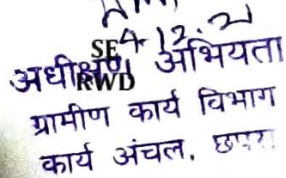 4.12.21
SE
RWD
अधीक्षण अभियंता
ग्रामीण कार्य विभाग
कार्य अंचल, छपरा